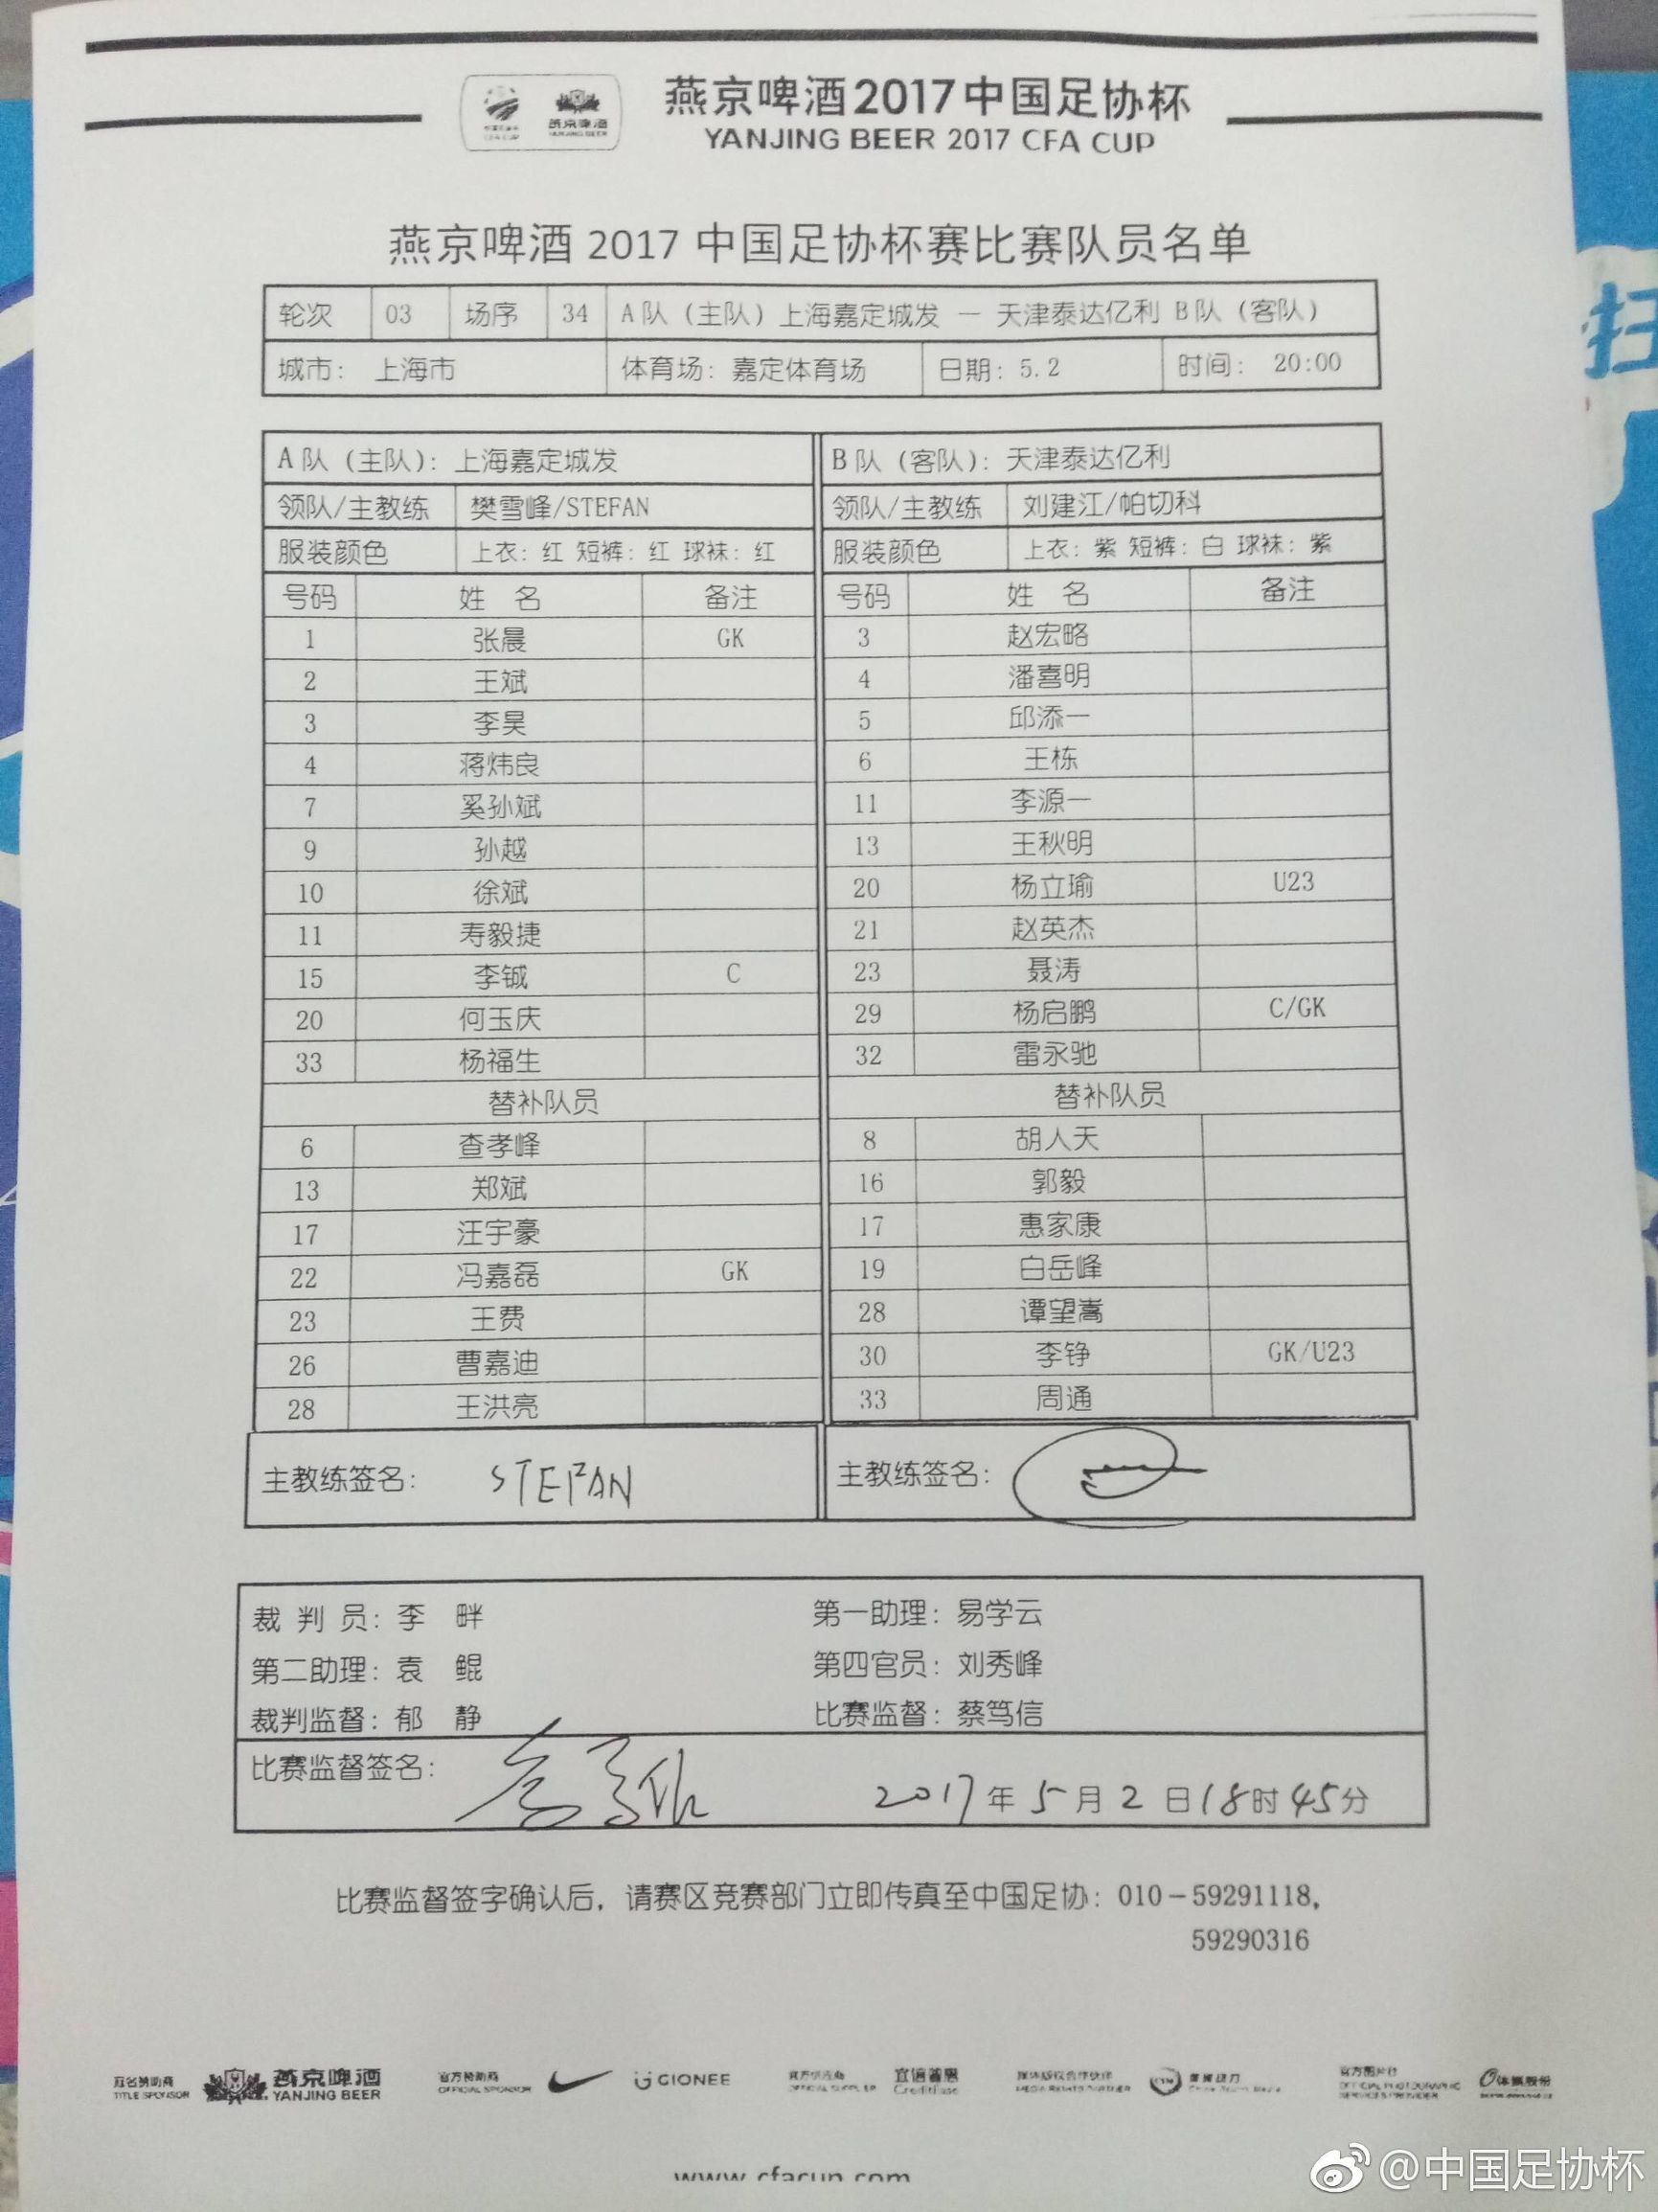 燕京啤酒2017中国足协杯
YANJING BEER 2017 CFA CUP
燕京啤酒 2017 中国足协杯赛比赛队员名单
轮次 03 场序 34 A队（主队）上海嘉定城发 — 天津泰达亿利 B队（客队）
城市： 上海市 体育场：嘉定体育场 日期：5.2 时间： 20:00
A队（主队）：上海嘉定城发 B队（客队）：天津泰达亿利
领队/主教练 樊雪峰/STEFAN 领队/主教练 刘建江/帕切科
服装颜色 上衣：红 短裤：红 球袜：红 服装颜色 上衣：紫 短裤：白 球袜：紫
号码 姓 名 备注 号码 姓 名 备注
1 张晨 GK 3 赵宏略
2 王斌 4 潘喜明
3 李昊 5 邱添一
4 蒋炜良 6 王栋
7 奚孙斌 11 李源一
9 孙越 13 王秋明
10 徐斌 20 杨立瑜 U23
11 寿毅捷 21 赵英杰
15 李铖 C 23 聂涛
20 何玉庆 29 杨启鹏 C/GK
33 杨福生 32 雷永驰
替补队员 替补队员
6 查孝峰 8 胡人天
13 郑斌 16 郭毅
17 汪宇豪 17 惠家康
22 冯嘉磊 GK 19 白岳峰
23 王费 28 谭望嵩
26 曹嘉迪 30 李铮 GK/U23
28 王洪亮 33 周通
主教练签名： STEFAN 主教练签名：
裁 判 员：李 畔 第一助理：易学云
第二助理：袁 鲲 第四官员：刘秀峰
裁判监督：郁 静 比赛监督：蔡笃信
比赛监督签名： 2017年5月2日18时45分
比赛监督签字确认后，请赛区竞赛部门立即传真至中国足协：010-59291118，
59290316
冠名赞助商 燕京啤酒 官方赞助商 GIONEE 官方供应商 宜信普惠 媒体版权合作伙伴 官方图片社 体娱股份
TITLE SPONSOR YANJING BEER OFFICIAL SPONSOR OFFICIAL SUPPLIER CreditEase MEDIA RIGHTS PARTNER
www.cfacup.com
@中国足协杯